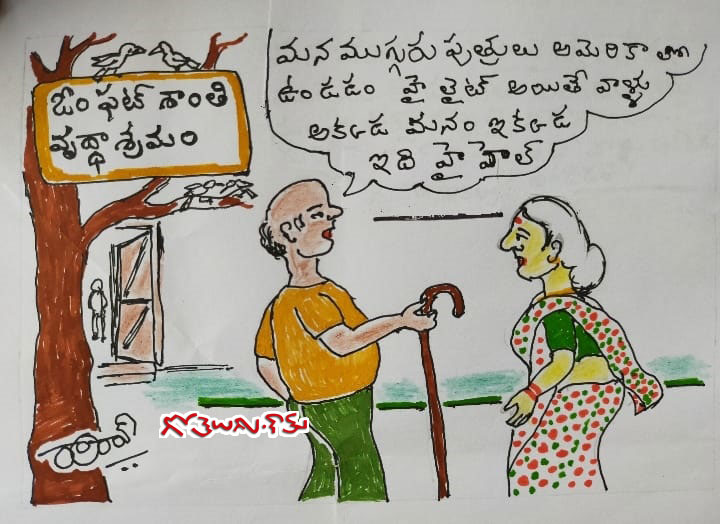 ఓం ఫట్ శాంతి
వృద్ధాశ్రమం
మన ముగ్గురు పుత్రులు అమెరికా లో
ఉండడం హై లైట్ అయితే వాళ్ళు
అక్కడ మనం ఇక్కడ
ఇది హై హెల్
గోతెలుగు.కామ్